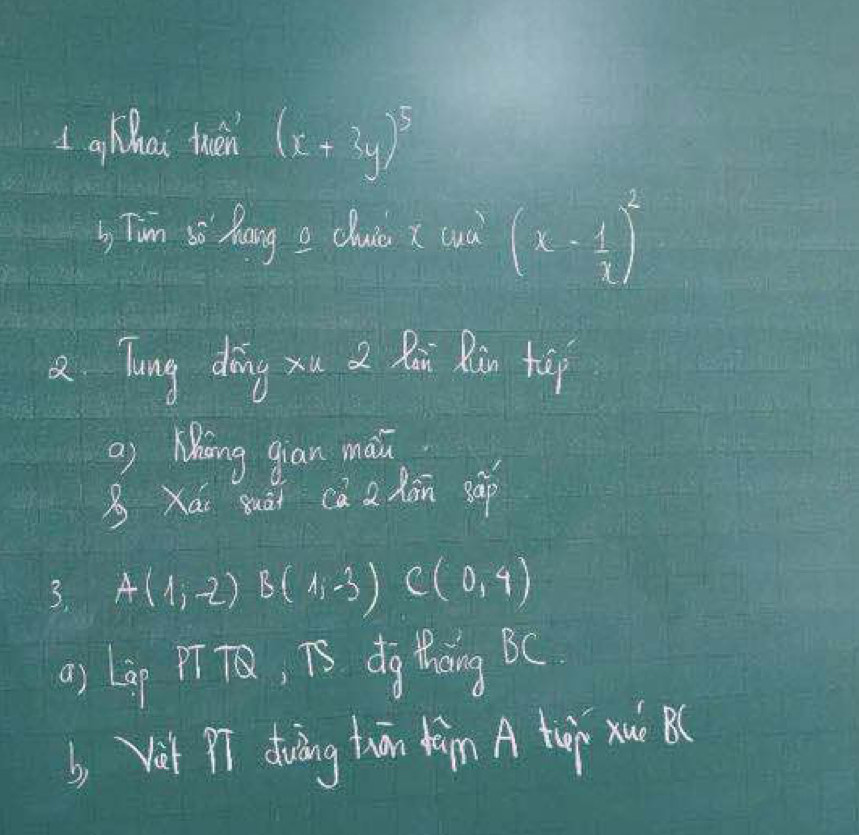 1 a) Khai triển (x + 3y)^5
b) Tìm số hạng o chứa x của (x - 1/x)^2
2. Tung đồng xu 2 lần liên tiếp
a) Không gian mẫu.
b) Xác suất cả 2 lần sấp
3. A(1;-2) B(1;-3) C(0,4)
a) Lập PT TQ, TS đg thẳng BC.
b) Viết PT đường tròn tâm A tiếp xúc BC